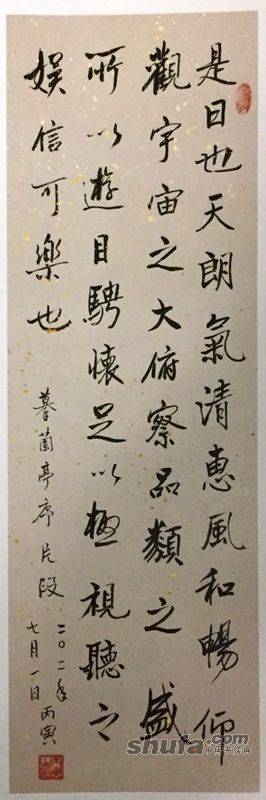 是日也天朗氣清惠風和暢仰
觀宇宙之大俯察品類之盛
所以遊目騁懷足以極視聽之
娛信可樂也
摹蘭亭序片段
二〇二一年
七月一日丙寅
shufa.com
中国书法网